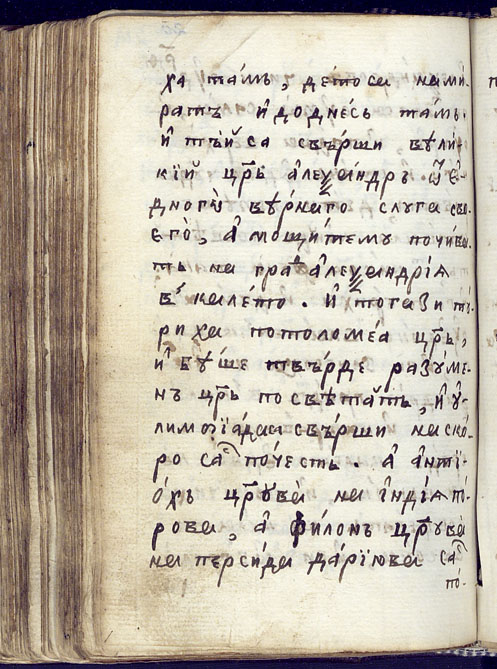 ха тамъ, дето са нами-
ратъ и до днесь тамъ.
и тъй са свърши вели-
кїй цр҃ь алеѯандръ ѿ е-
дного вѣрнаго слуга сво-
его, а мощитему почива-
тъ на гра҃ алеѯандрїѧ
въ калето. и тогази ту-
риха потоломеа цр҃ь,
и беше твърде разуме-
нъ цр҃ь по светатъ, и ѹ-
лимпїада свърши наско-
ро са҃ почесть. а антї-
охъ цр҃ува на їндїѧ п-
рова, а филонъ цр҃ува
на персида дарїюва са҃
по-